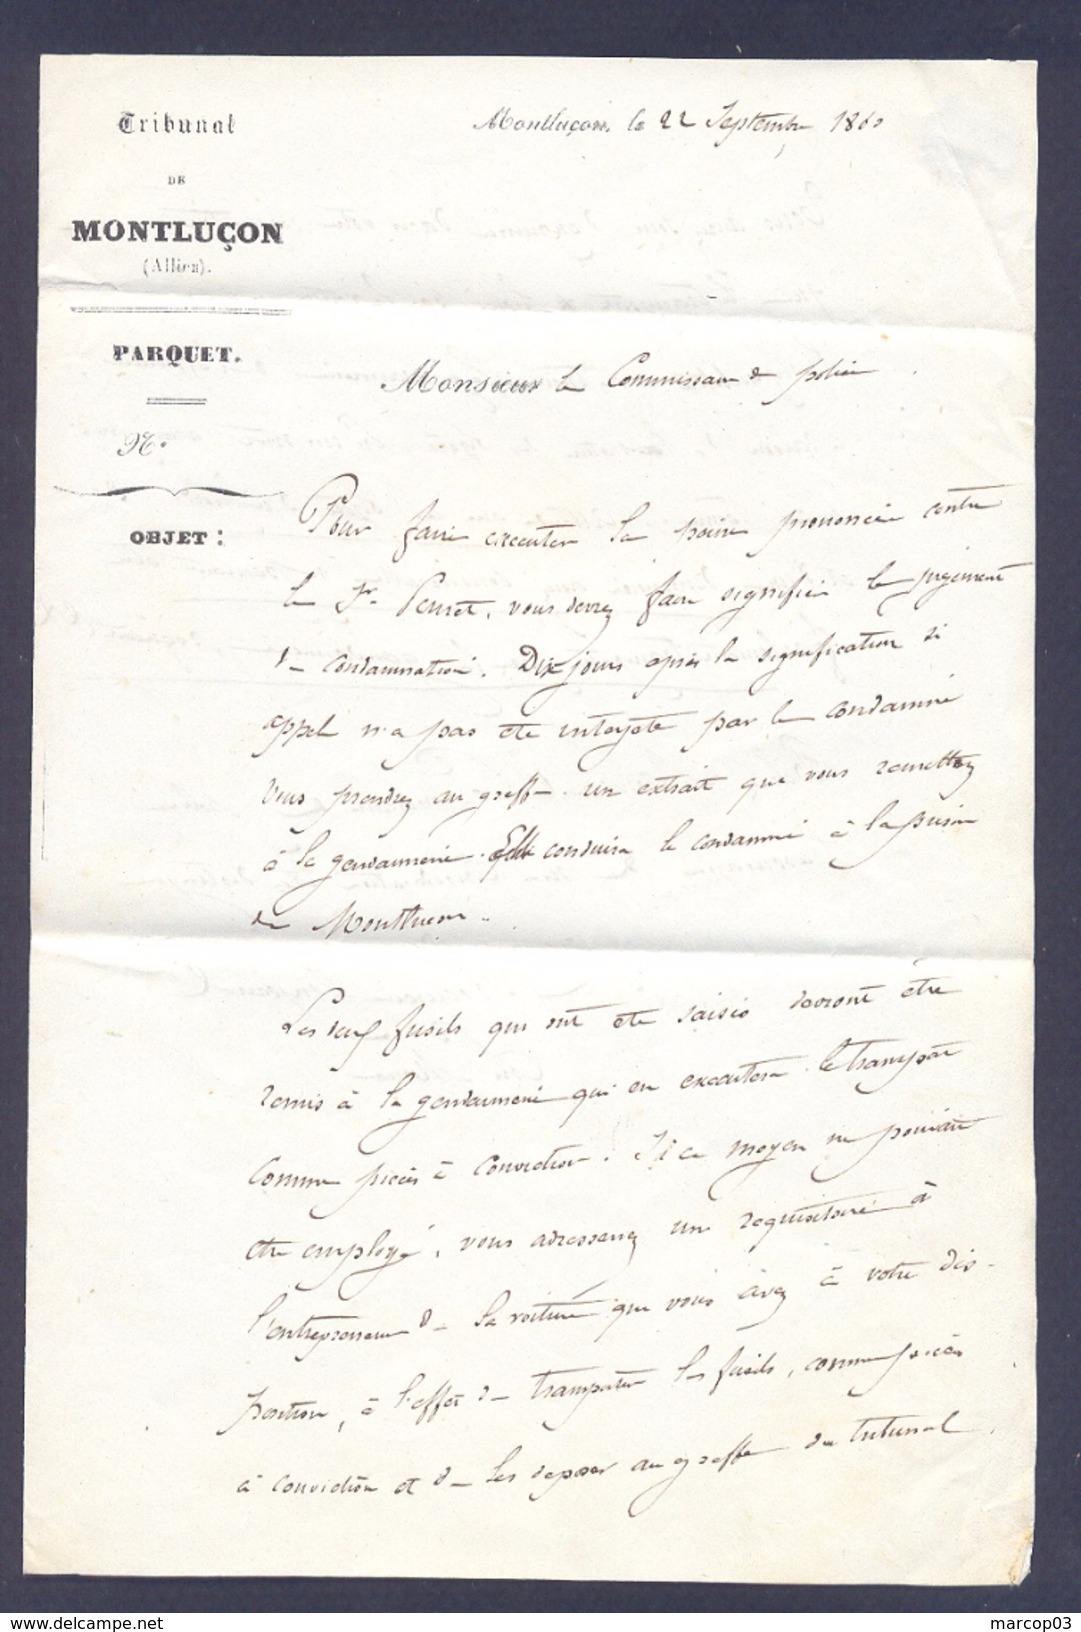 Tribunal
DE
MONTLUÇON
(Allier).
PARQUET.
N°
OBJET :
Montluçon, le 22 Septembre 1860
Monsieur le Commissaire de police .
Pour faire executer la peine prononcée contre
le Sr. Perret, vous devrez faire signifier le jugement
de condamnation. Dix jours après la signification si
appel n'a pas été interjeté par le condamné
vous prendrez au greffe un extrait que vous remettrez
à la gendarmerie. Elle conduira le condamné à la prison
de Montluçon.
Les deux fusils qui ont été saisis devront être
remis à la gendarmerie qui en executera le transport
comme pièces à conviction. Si ce moyen ne pouvait
être employé, vous adresserez un requisitoire à
l'entrepreneur de la voiture que vous avez à votre dis-
position, à l'effet de transporter les fusils, comme pièces
à conviction et de les deposer au greffe du tribunal
marcop03